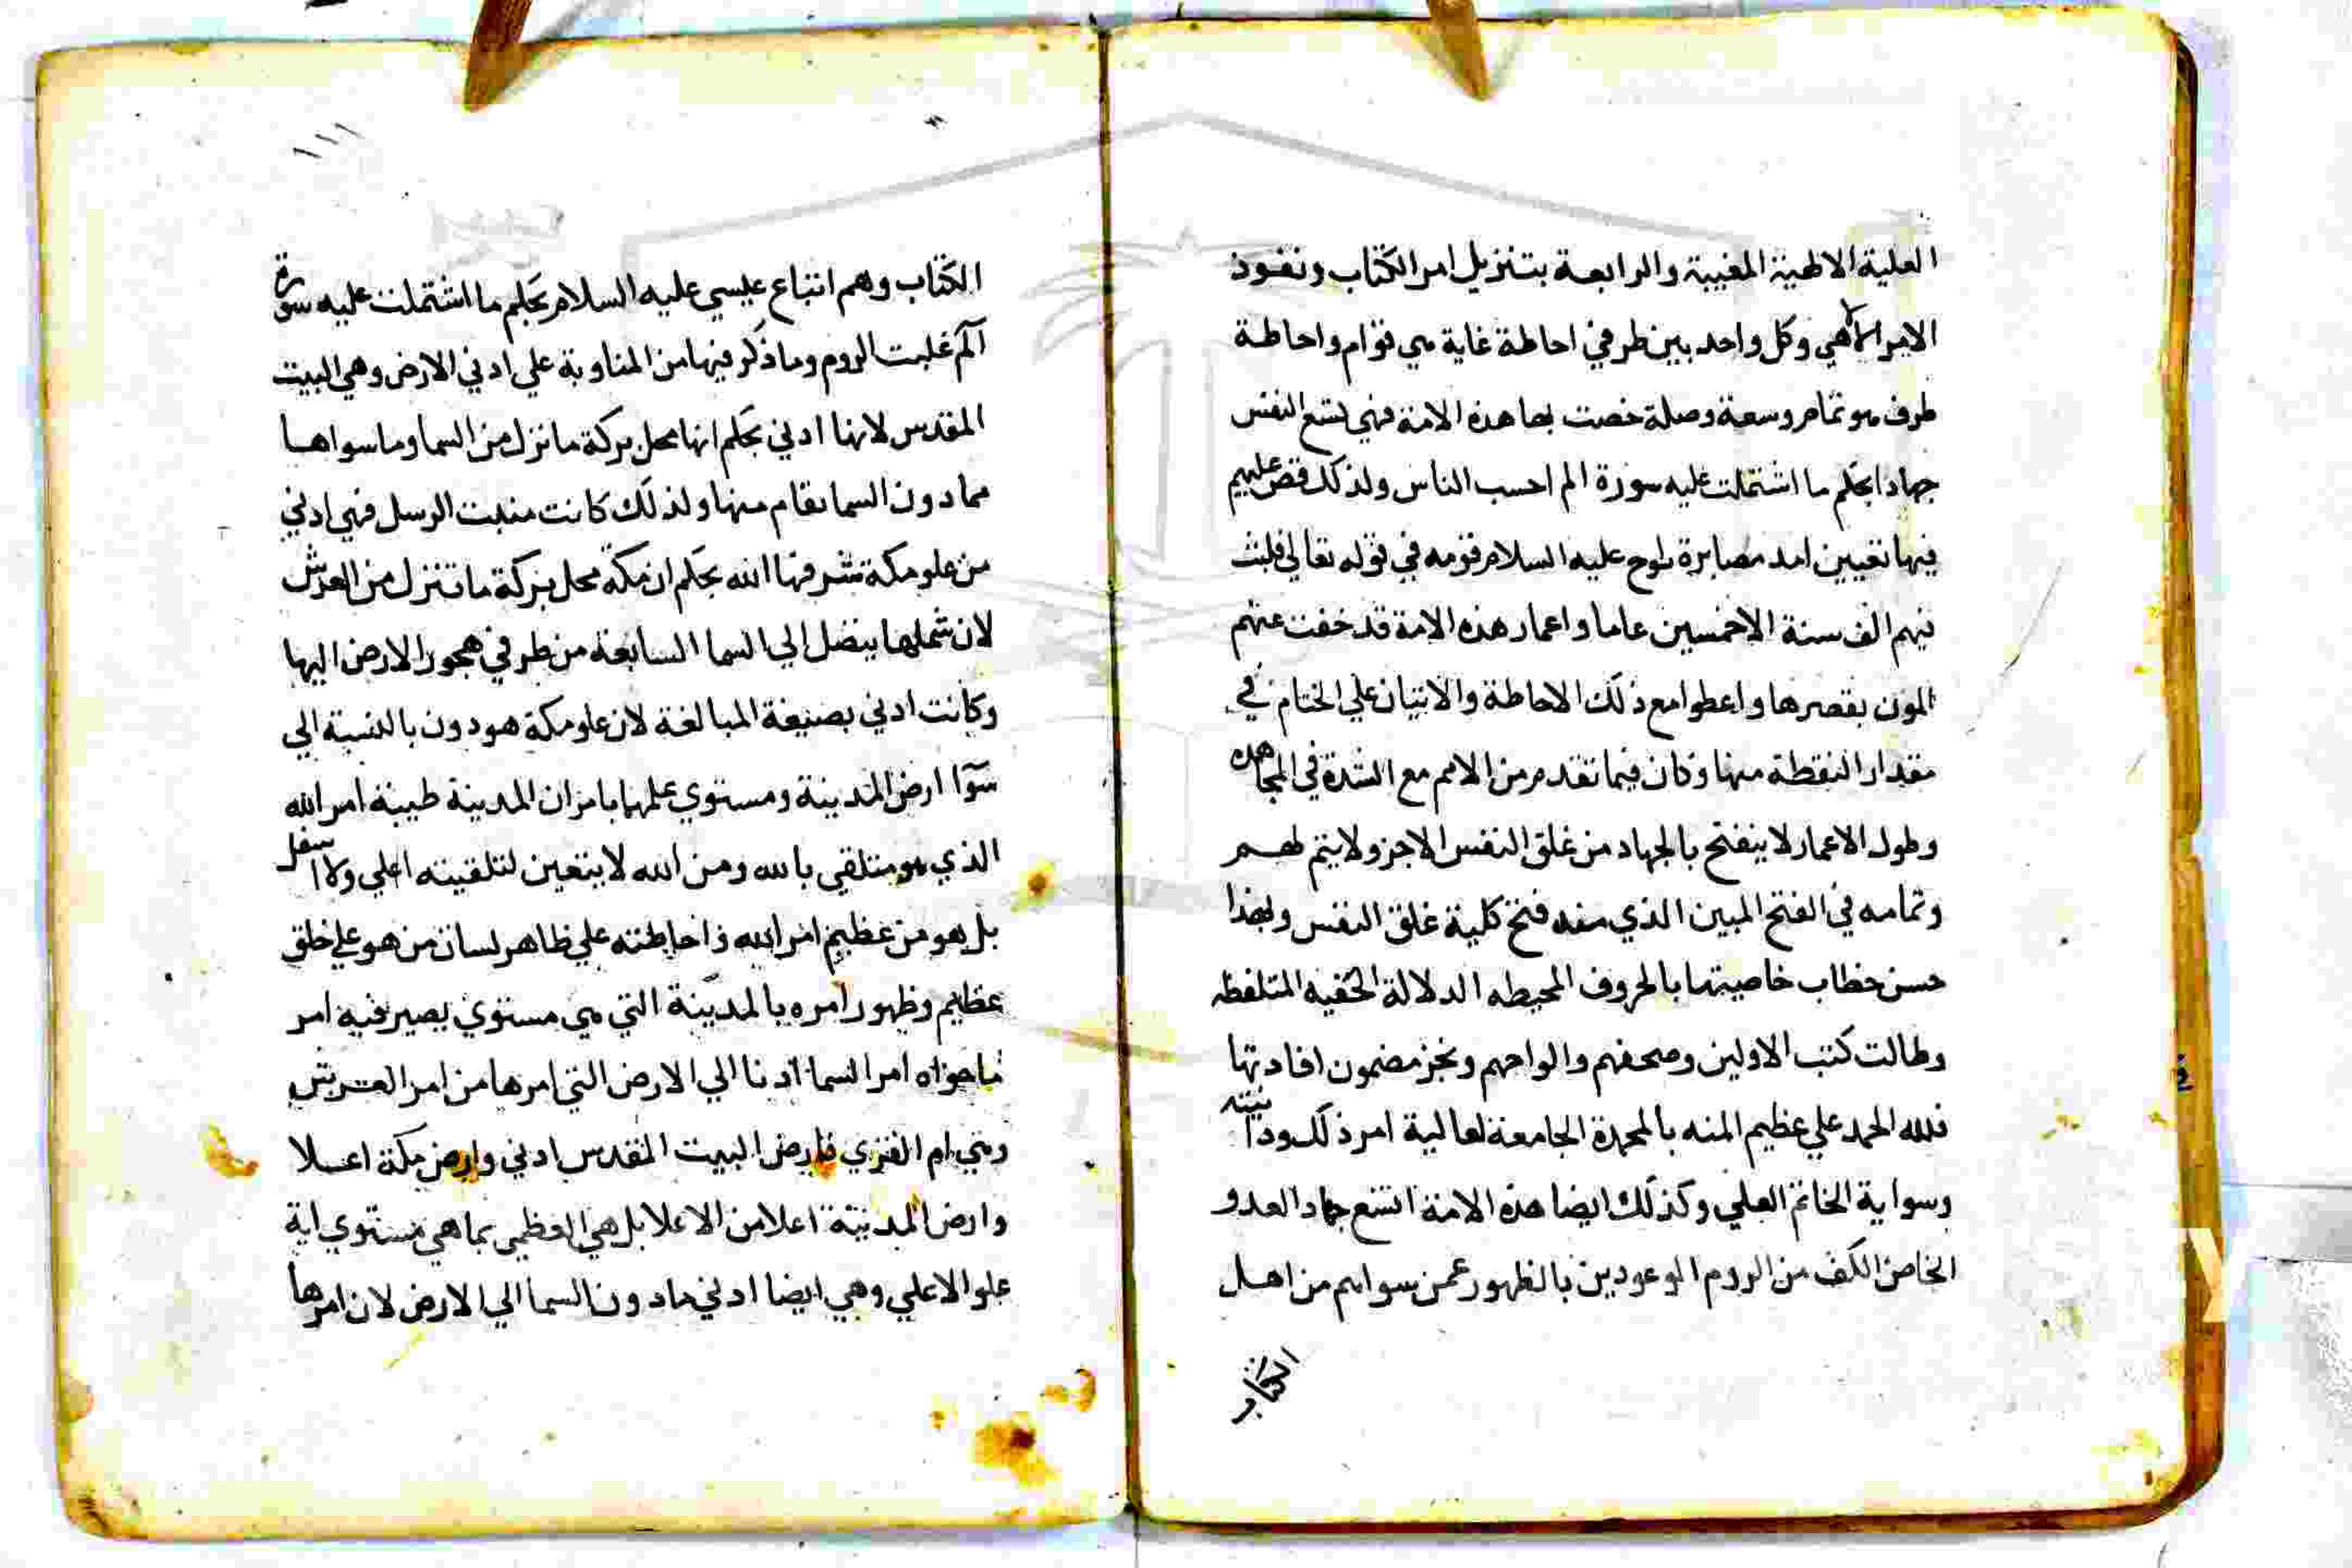 العلية الالهية المغيبة والرابعة بتنزيل امر الكتاب ونفوذ
الامر الالاهي وكل واحد بين طرفي احاطة غاية هي قوام واحاطة
طرف هو تمام وسعة وصلة خصت بها هذه الامة فهي لتسع النفس
جهادا بحكم ما اشتملت عليه سورة الم احسب الناس ولذلك قص عليهم
فيها تعيين امد مصابرة نوح عليه السلام قومه في قوله تعالي فلبث
فيهم الف سنة الا خمسين عاما واعمار هذه الامة قد خفت عنهم
المون بقصرها واعطوا مع ذلك الاحاطة والاتيان علي الختام في
مقدار النقطة منها وكان فيما تقدم من الامم مع الشدة في المجاهده
وطول الاعمار لا ينفتح بالجهاد من غلق النفس الاجزو لا يتم لهم
وتمامه في الفتح المبين الذي منه فتح كلية غلق النفس ولهذا
حسن خطاب خاصيتها بالحروف المحيطه الدلالة الخفيه المتلفظه
وطالت كتب الاولين وصحفهم والواحهم ونجز مضمون افادتها
فلله الحمد علي عظيم المنه بالمحمدة الجامعة لعالية امر ذلك ودانيته
وسواية الخاتم العلي وكذلك ايضا هذه الامة اتسع جهاد العدو
الخاص الكف من الروم الوعودين بالظهور عمن سواهم من اهل
الكتاب
١١١
الكتاب وهم اتباع عيسي عليه السلام بحكم ما اشتملت عليه سورة
الم غلبت الروم وما ذكر فيها من المناوبة علي ادني الارض وهي البيت
المقدس لانها ادني بحكم انها محل بركة ما نزل من السما وما سواها
مما دون السما نقام منها ولذلك كانت منبت الرسل فهي ادني
من علو مكة شرفها الله بحكم ان مكة محل بركة ما تنزل من العرش
لان شملها يتصل الي السما السابعة من طرفي هجور الارض اليها
وكانت ادني بصيغة المبالغة لان علو مكة هو دون بالنسبة الي
سوآ ارض المدينة ومستوي علمها بامزان المدينة طيبة امر الله
الذي هو متلقي بالله ومن الله لا يتعين لتلقيته اعلي ولا اسفل
بل هو من عظيم امر الله واحاطته علي ظاهر لسان من هو علي خلق
عظيم وظهور امره بالمدينة التي هي مستوي يصير فيه امر
ما حواه امر السما ادنا الي الارض التي امرها من امر العرش
وهي ام القري فارض البيت المقدس ادني وارض مكة اعلا
وارض المدينة اعلا من الاعلا بل هي العظمي بما هي مستوي اية
علو الاعلي وهي ايضا ادني مادون السما الي الارض لان امرها